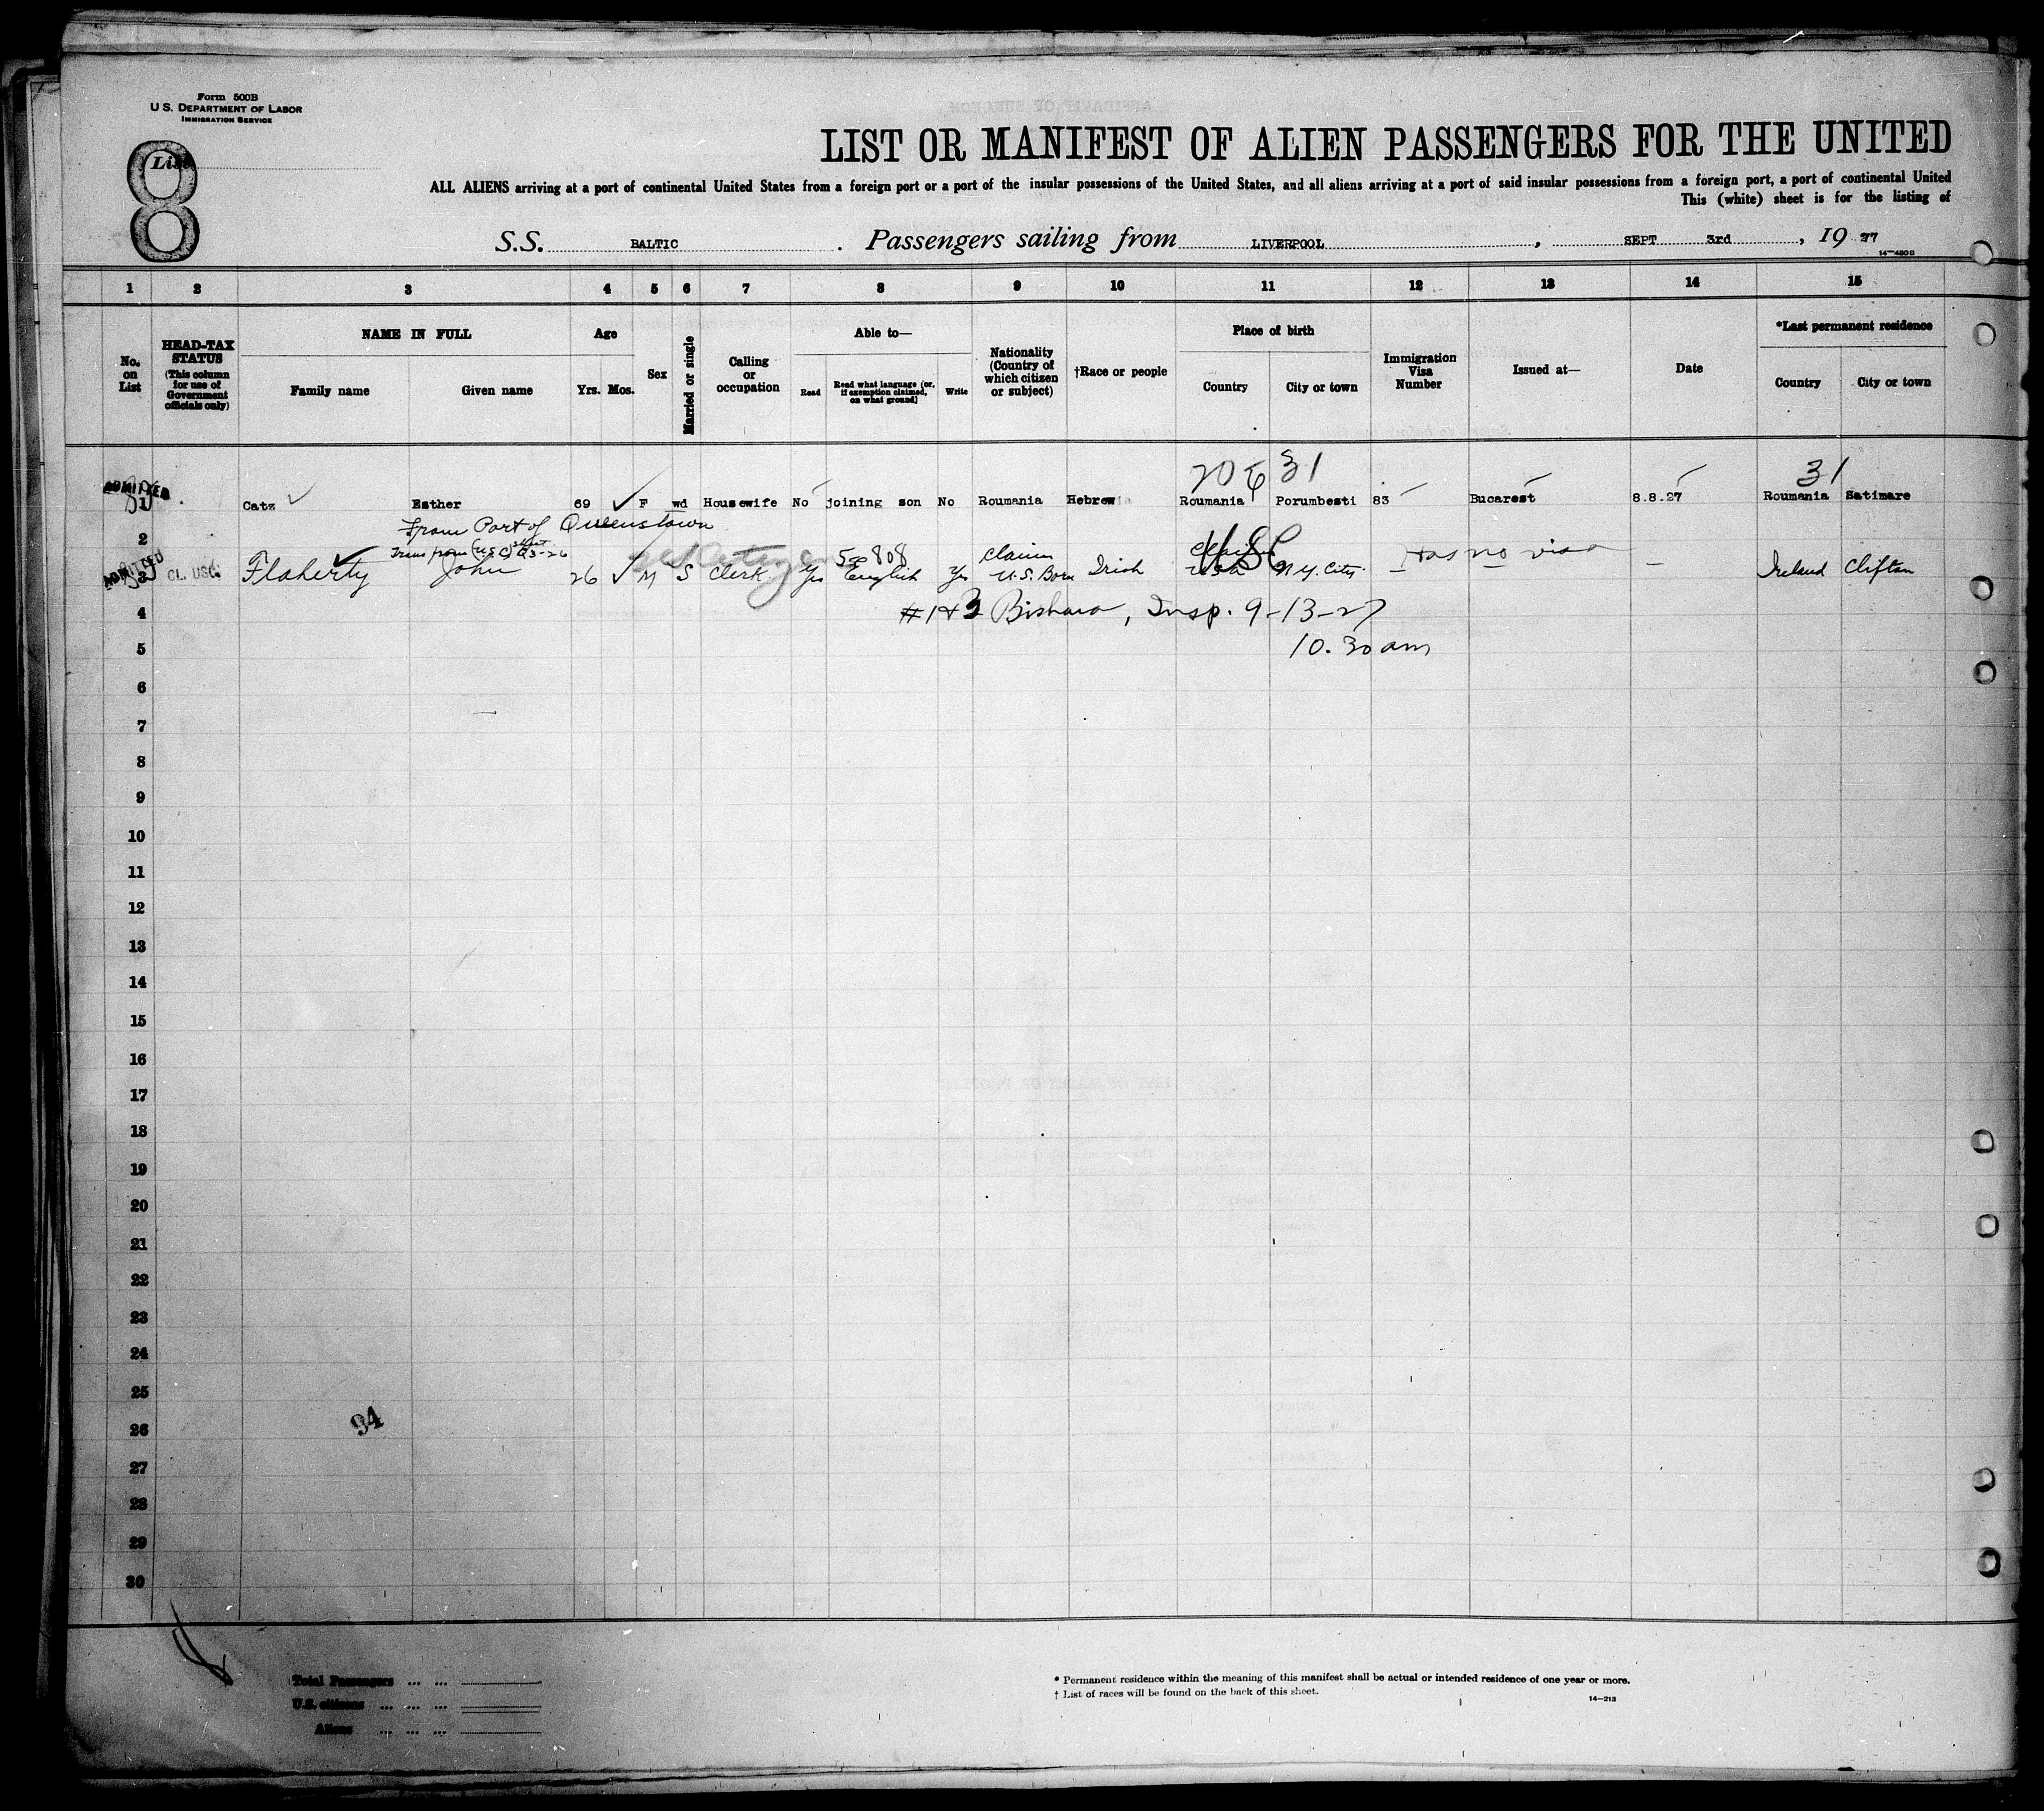 Form 500B
U.S. DEPARTMENT OF LABOR
IMMIGRATION SERVICE
List 8
LIST OR MANIFEST OF ALIEN PASSENGERS FOR THE UNITED
ALL ALIENS arriving at a port of continental United States from a foreign port or a port of the insular possessions of the United States, and all aliens arriving at a port of said insular possessions from a foreign port, a port of continental United
This (white) sheet is for the listing of
S.S. BALTIC . Passengers sailing from LIVERPOOL , SEPT 3rd , 19 27
14—480 B
1 2 3 4 5 6 7 8 9 10 11 12 13 14 15
No. on List
HEAD-TAX STATUS (This column for use of Government officials only)
NAME IN FULL
Family name Given name
Age
Yrs. Mos.
Sex
Married or single
Calling or occupation
Able to—
Read Read what language (or, if exemption claimed, on what ground) Write
Nationality (Country of which citizen or subject)
†Race or people
Place of birth
Country City or town
Immigration Visa Number
Issued at—
Date
*Last permanent residence
Country City or town
20 31 31
ADMITTED
1 Catz Esther 69 F wd Housewife No joining son No Roumania Hebrew Roumania Porumbesti 83 Bucarest 8.8.27 Roumania Satimare
From Port of Queenstown
2
Trans from (U.S.C.) sheet
ADMITTED
3 CL. USC. Flaherty John 26 M S Clerk Yes 5-808 English Yes claim U.S. Born Irish USC N.Y. City. — Has no visa — — Ireland Clifton
4 #1+3 Bishara, Insp. 9-13-27
5 10.30 am
6
7
8
9
10
11
12
13
14
15
16
17
18
19
20
21
22
23
24
25
26
94
27
28
29
30
Total Passengers ... ...
U.S. citizens ... ... ...
Aliens ... ... ...
* Permanent residence within the meaning of this manifest shall be actual or intended residence of one year or more.
† List of races will be found on the back of this sheet.
14—213